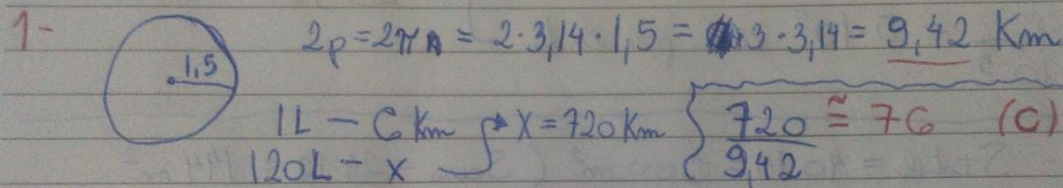 1-
1,5
2p = 2πR = 2·3,14·1,5 = 3·3,14 = 9,42 Km
1L - 6 Km
120L - X
X = 720 Km
720 / 9,42 ≅ 76 (C)